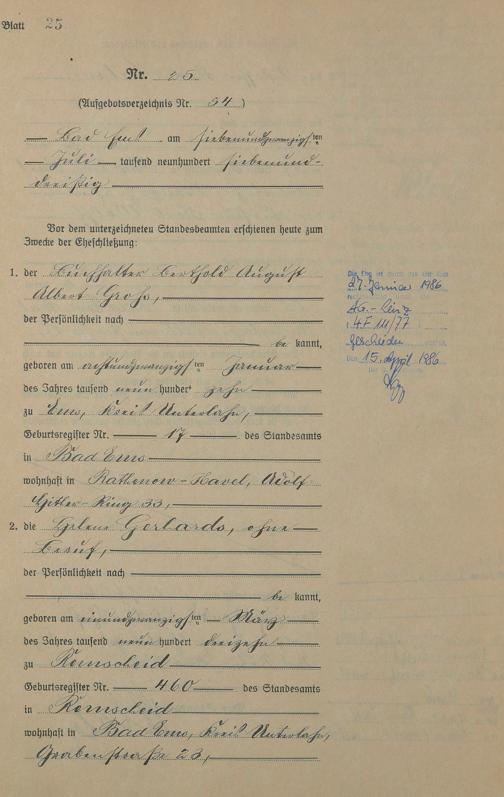 Blatt 25
Nr. 25
(Aufgebotsverzeichnis Nr. 54)
Bad Ems am siebenundzwanzigsten
Juli tausend neunhundert siebenund-
dreißig
Vor dem unterzeichneten Standesbeamten erschienen heute zum
Zwecke der Eheschließung:
1. der Buchhalter Berthold August
Albert Groß,
der Persönlichkeit nach
be kannt,
geboren am achtundzwanzigsten Januar
des Jahres tausend neun hundert zehn
zu Ems, Kreis Unterlahn,
Geburtsregister Nr. 17 des Standesamts
in Bad Ems
wohnhaft in Rathenow-Havel, Adolf
Hitler-Ring 33,
2. die Helene Gerlards, ohne
Beruf,
der Persönlichkeit nach
be kannt,
geboren am einundzwanzigsten März
des Jahres tausend neun hundert dreizehn
zu Remscheid
Geburtsregister Nr. 460 des Standesamts
in Remscheid
wohnhaft in Bad Ems, Kreis Unterlahn,
Grabenstraße 23,
Die Ehe ist durch
27. Januar 1986
AG.-
4F 111/77
geschieden
15. April 1986